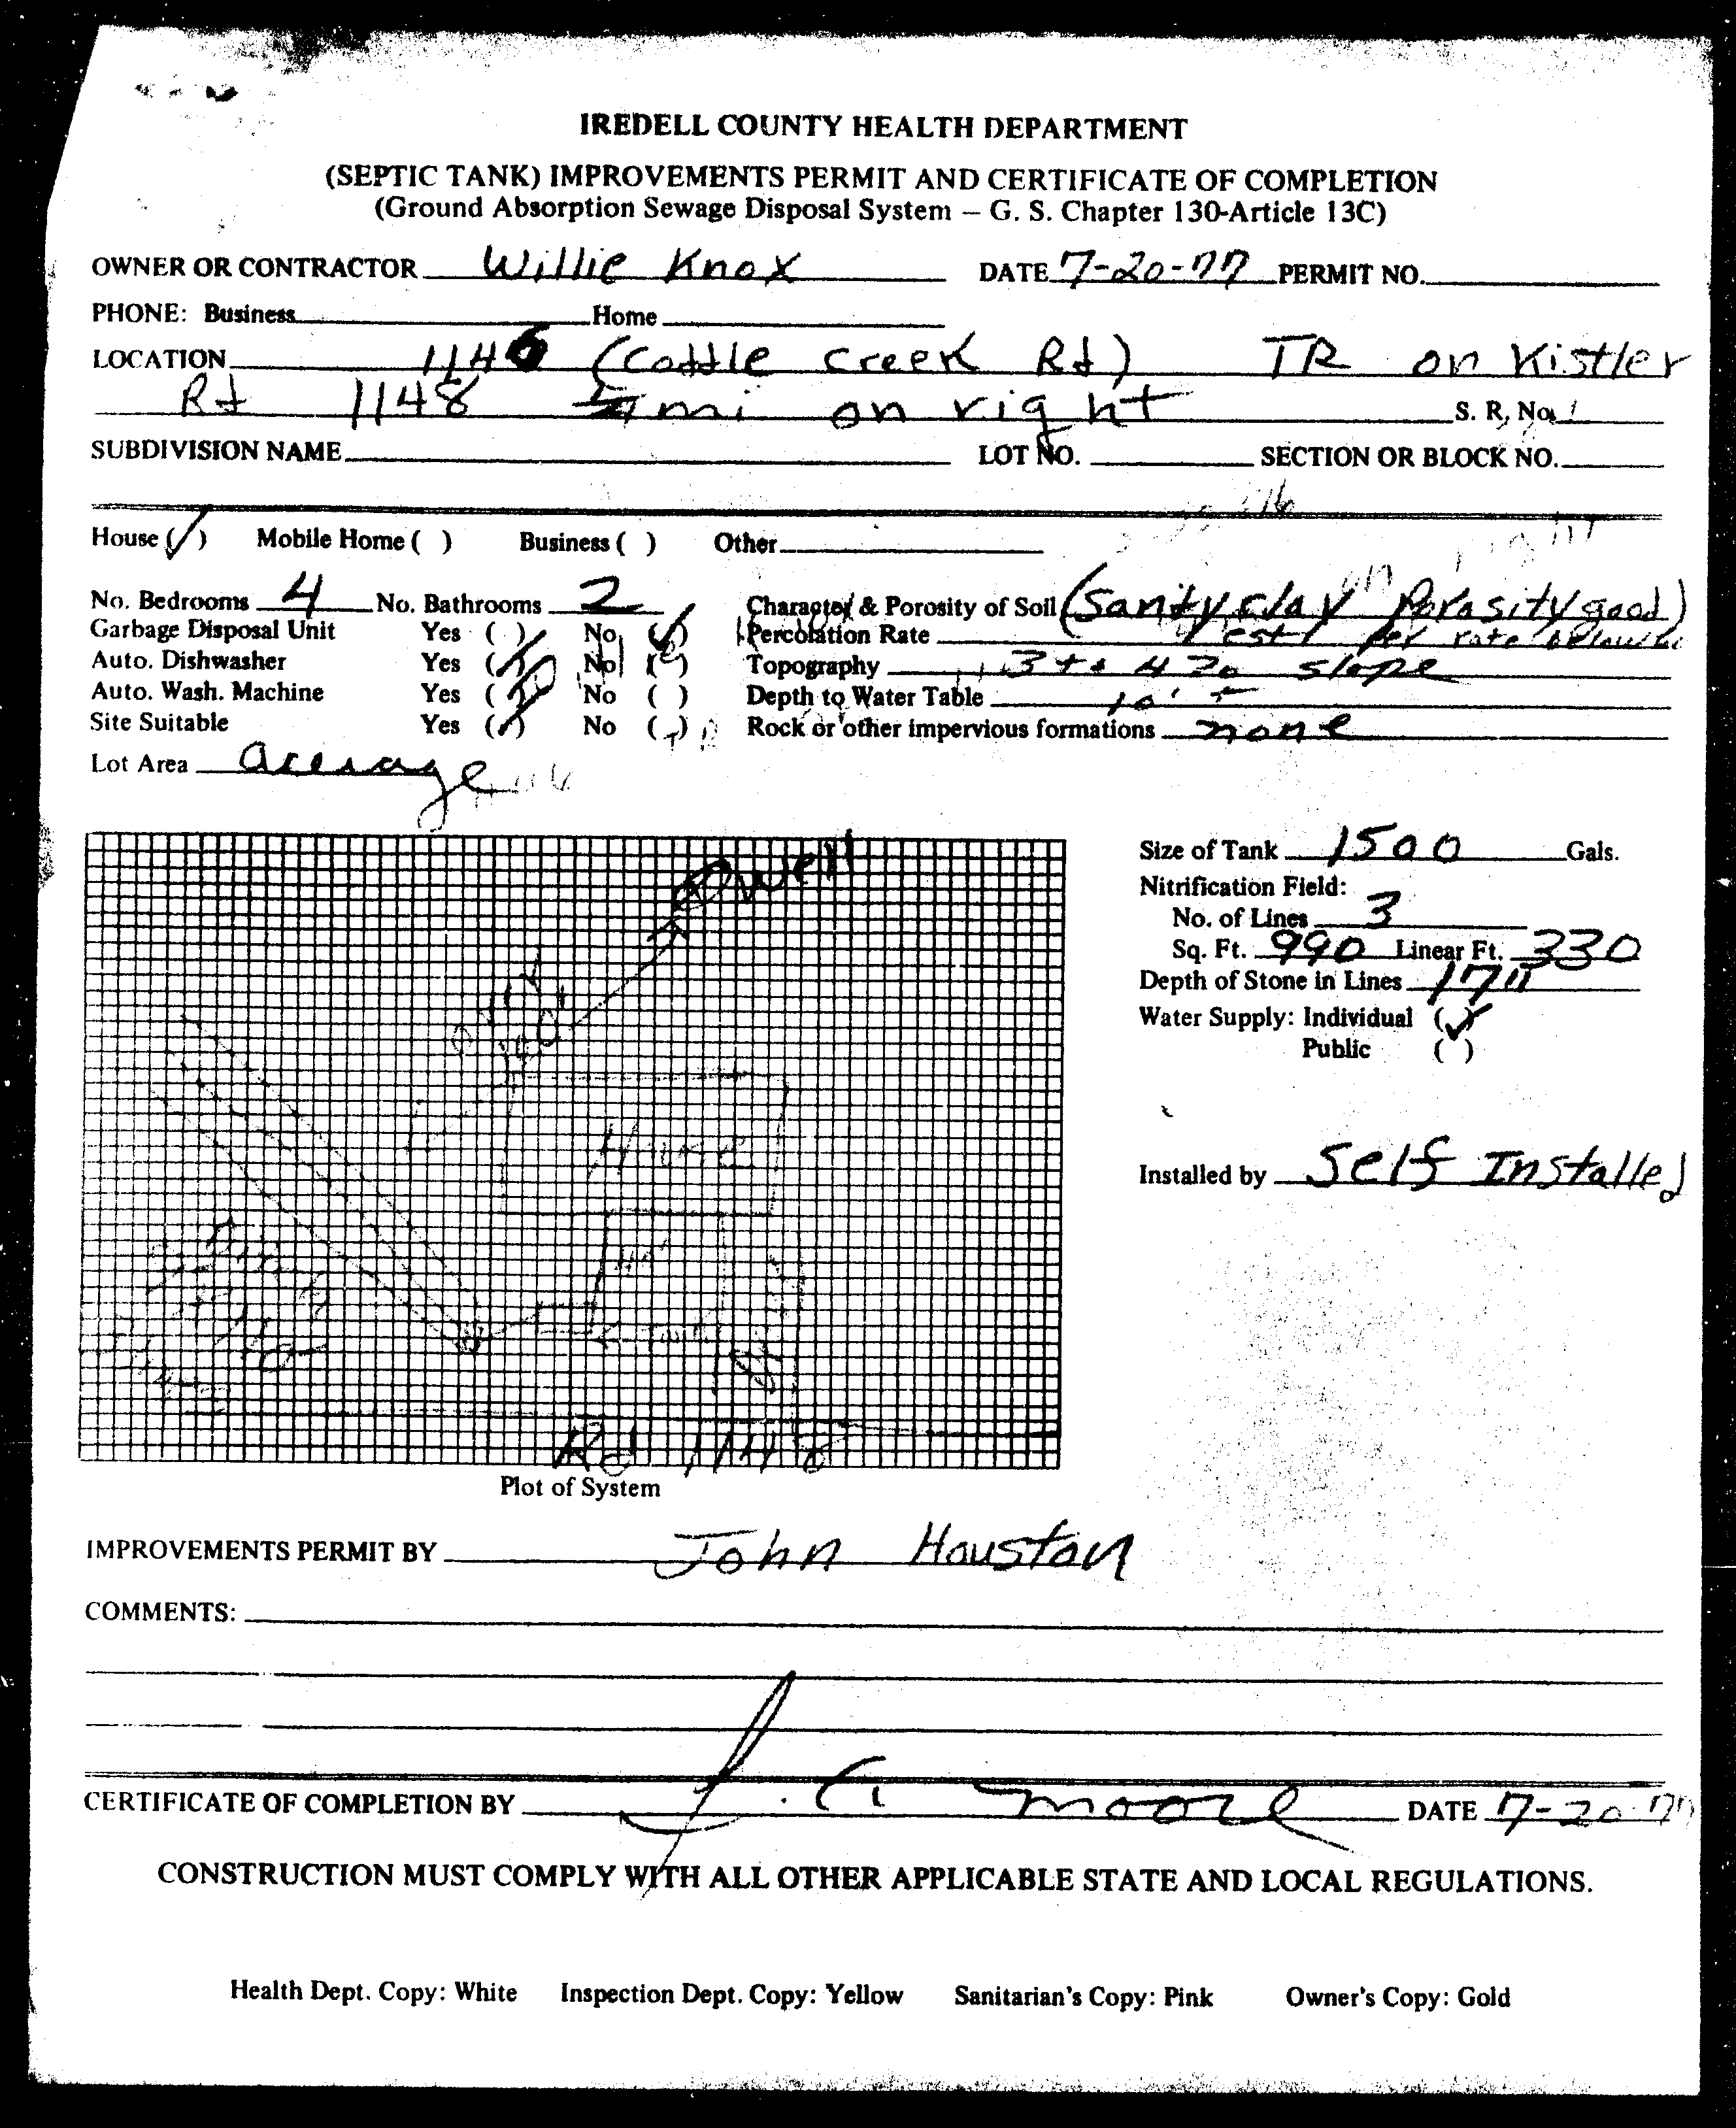 IREDELL COUNTY HEALTH DEPARTMENT
(SEPTIC TANK) IMPROVEMENTS PERMIT AND CERTIFICATE OF COMPLETION
(Ground Absorption Sewage Disposal System – G. S. Chapter 130-Article 13C)
OWNER OR CONTRACTOR Willie Knox DATE 7-20-77 PERMIT NO.
PHONE: Business Home
LOCATION 1146 (Coddle Creek Rd) TR on Kistler
Rd 1148 mi on right S. R. No.
SUBDIVISION NAME LOT NO. SECTION OR BLOCK NO.
House (✓) Mobile Home ( ) Business ( ) Other
No. Bedrooms 4 No. Bathrooms 2 Character & Porosity of Soil (Sandy clay Porosity good)
Garbage Disposal Unit Yes ( ) No (✓) Percolation Rate est per rate below
Auto. Dishwasher Yes (✓) No ( ) Topography 3 to 4 % slope
Auto. Wash. Machine Yes (✓) No ( ) Depth to Water Table 10' +
Site Suitable Yes (✓) No ( ) Rock or other impervious formations none
Lot Area acerage
well
Size of Tank 1500 Gals.
Nitrification Field:
No. of Lines 3
Sq. Ft. 990 Linear Ft. 330
Depth of Stone in Lines 17"
Water Supply: Individual (✓)
Public ( )
House
Installed by Self Installed
Rd 1148
Plot of System
IMPROVEMENTS PERMIT BY John Houston
COMMENTS:
CERTIFICATE OF COMPLETION BY J. G. Moore DATE 7-20-77
CONSTRUCTION MUST COMPLY WITH ALL OTHER APPLICABLE STATE AND LOCAL REGULATIONS.
Health Dept. Copy: White Inspection Dept. Copy: Yellow Sanitarian's Copy: Pink Owner's Copy: Gold